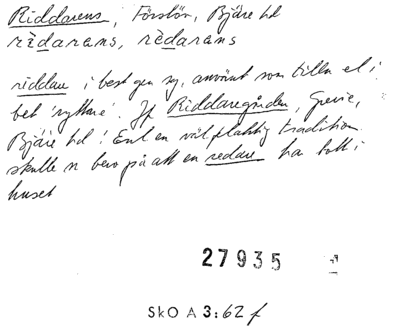 Riddarens, Förslöv, Bjäre hd
rìdarans, rèdarans
riddare i best gen sg, använt som tilln el i
bet 'ryttare'. Jf Riddaregården, Grevie,
Bjäre hd! Enl en tradition
skulle n bero på att en redare ha bott i
huset
27935
SkO A 3:62 f